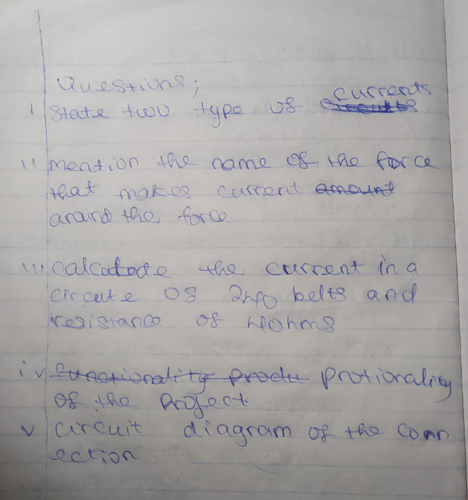 Questions;
i State two type of currents
ii mention the name of the force
that makes current
around the force
iii calculate the current in a
circute of 240 belts and
resistance of 40hms
iv protionality
of the project
v circuit diagram of the conn
ection